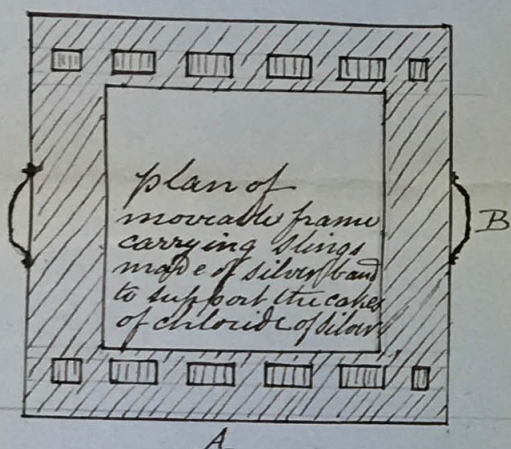 plan of
moveable frame
carrying slings
made of silver band
to support the cakes
of chloride of silver
B
A